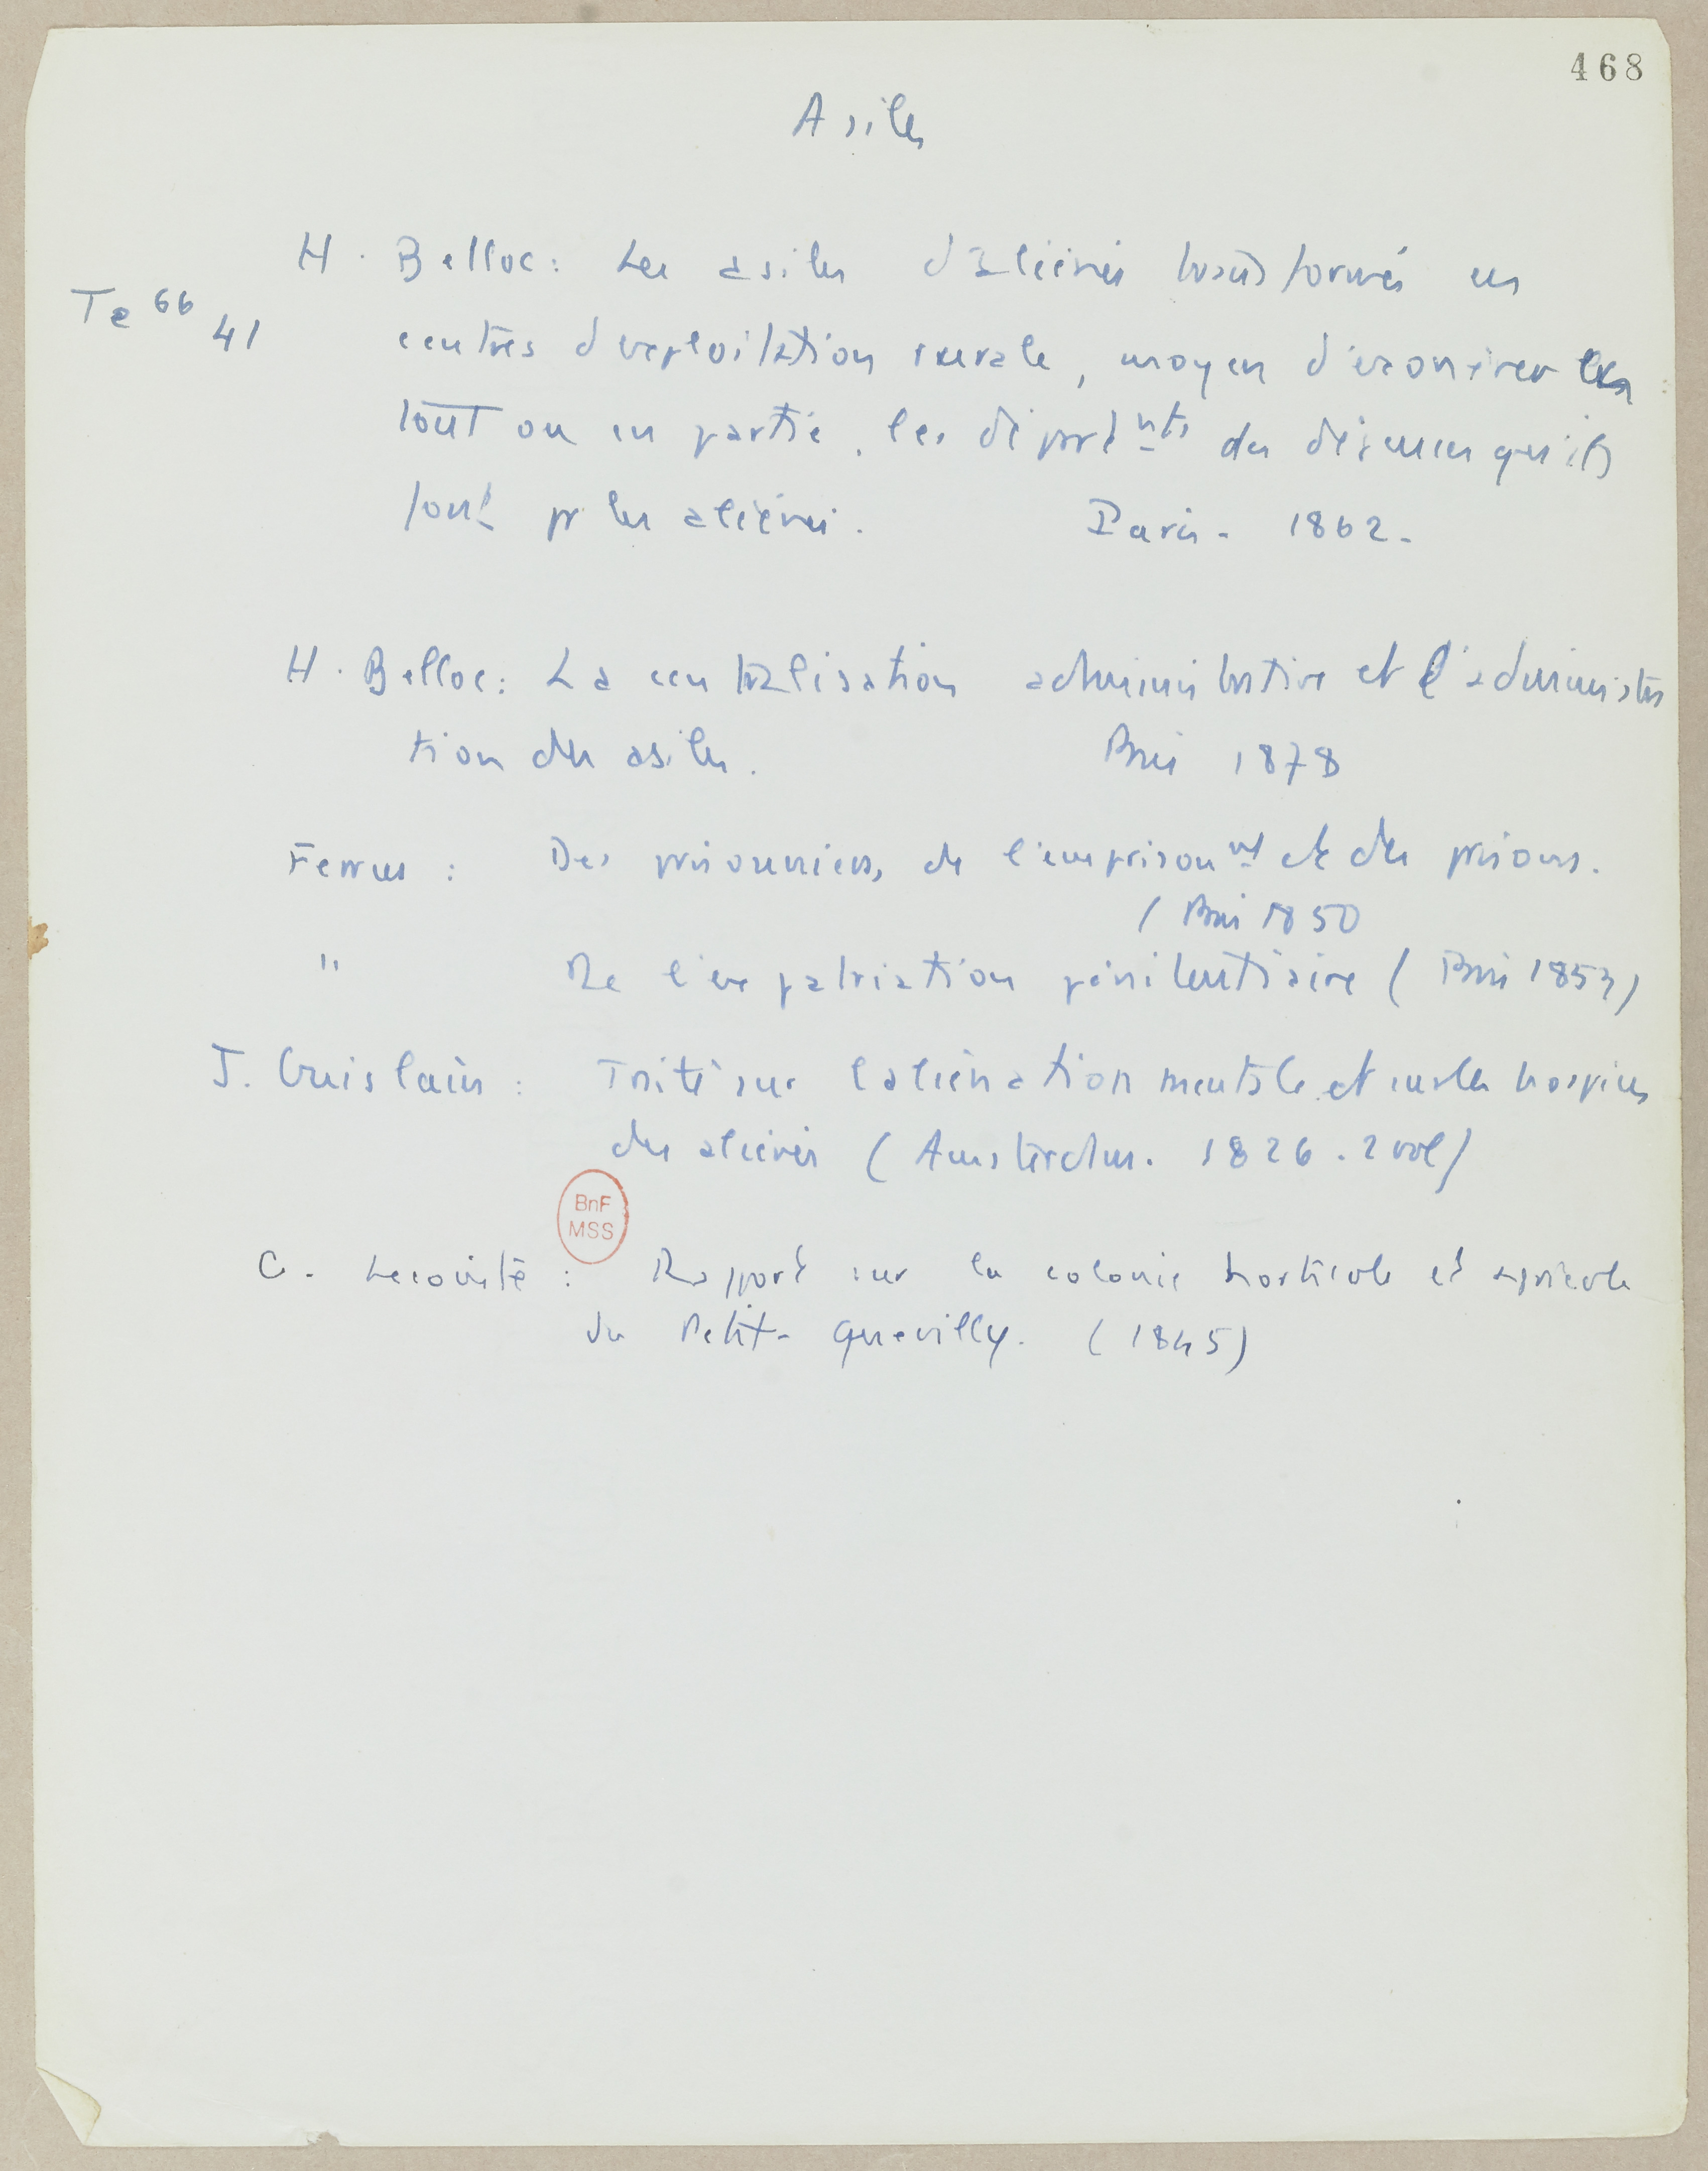 468
Asiles
H. Belloc : Les asiles d'aliénés transformés en
Te 66 41
centres d'exploitation rurale, moyen d'exonérer en
tout ou en partie, les départnts des dépenses qu'ils
font pr les aliénés. Paris - 1862 -
H. Belloc : La centralisation administrative et l'administra
tion des asiles. Paris 1878
Ferrus : Des prisonniers, de l'emprisonnt et des prisons.
( Paris 1850
" De l'expatriation pénitentiaire ( Paris 1853)
J. Guislain : Traité sur l'aliénation mentale et sur les hospices
des aliénés ( Amsterdam. 1826. 2 vol)
BnF
MSS
G. Lecointe : Rapport sur la colonie horticole et agricole
du Petit-Quevilly. (1845)